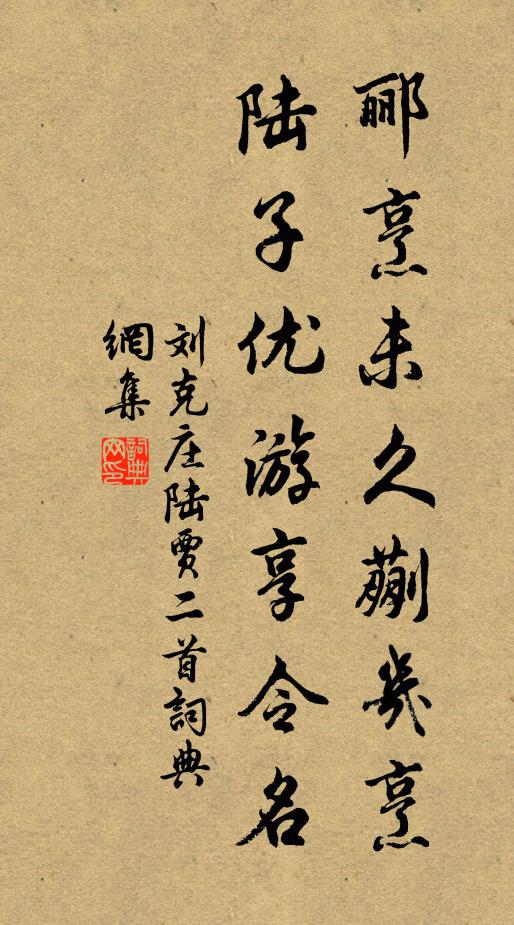 郦烹未久蒯幾烹
陆子优游享令名
刘克庄陆贾二首詞典
網集
詞典
网印